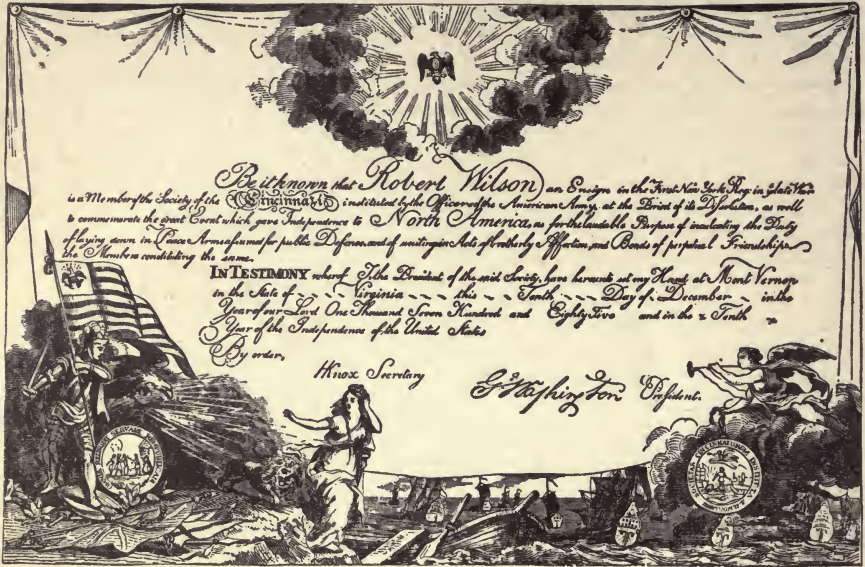 Be it known that Robert Wilson an Ensign in the First New York Reg. in ye late War
is a Member of the Society of the Cincinnati instituted by the Officers of the American Army, at the Period of its Dissolution, as well
to commemorate the great Event which gave Independence to North America, as for the laudable Purpose of inculcating the Duty
of laying down in Peace Arms assumed for public Defence, and of uniting in Acts of brotherly Affection, and Bonds of perpetual Friendship
the Members constituting the same.
IN TESTIMONY whereof I, the President of the said Society, have hereunto set my Hand at Mont Vernon
in the State of Virginia this Tenth Day of December in the
Year of our Lord One Thousand Seven Hundred and Eighty Five and in the Tenth
Year of the Independence of the United States
By order,
HKnox Secretary
G Washington President.